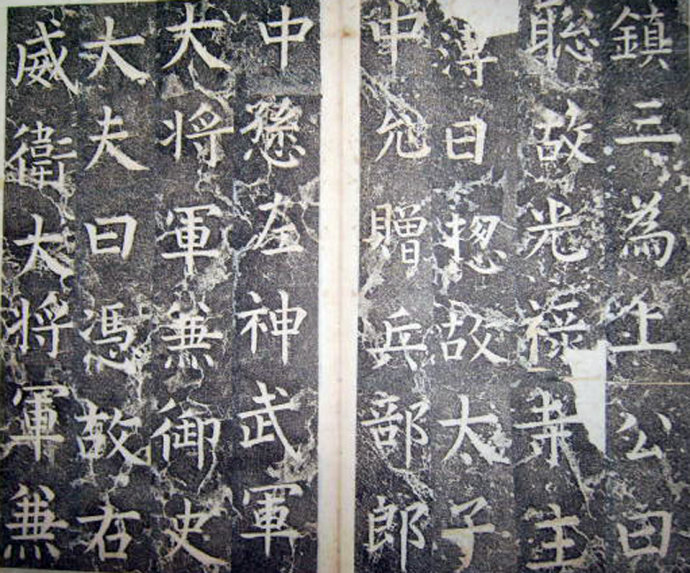 鎮三為上公曰
聡故光禄寺主
簿曰揔故太子
中允贈兵部郎
中愻左神武軍
大将軍兼御史
大夫曰憑故右
威衛大将軍兼